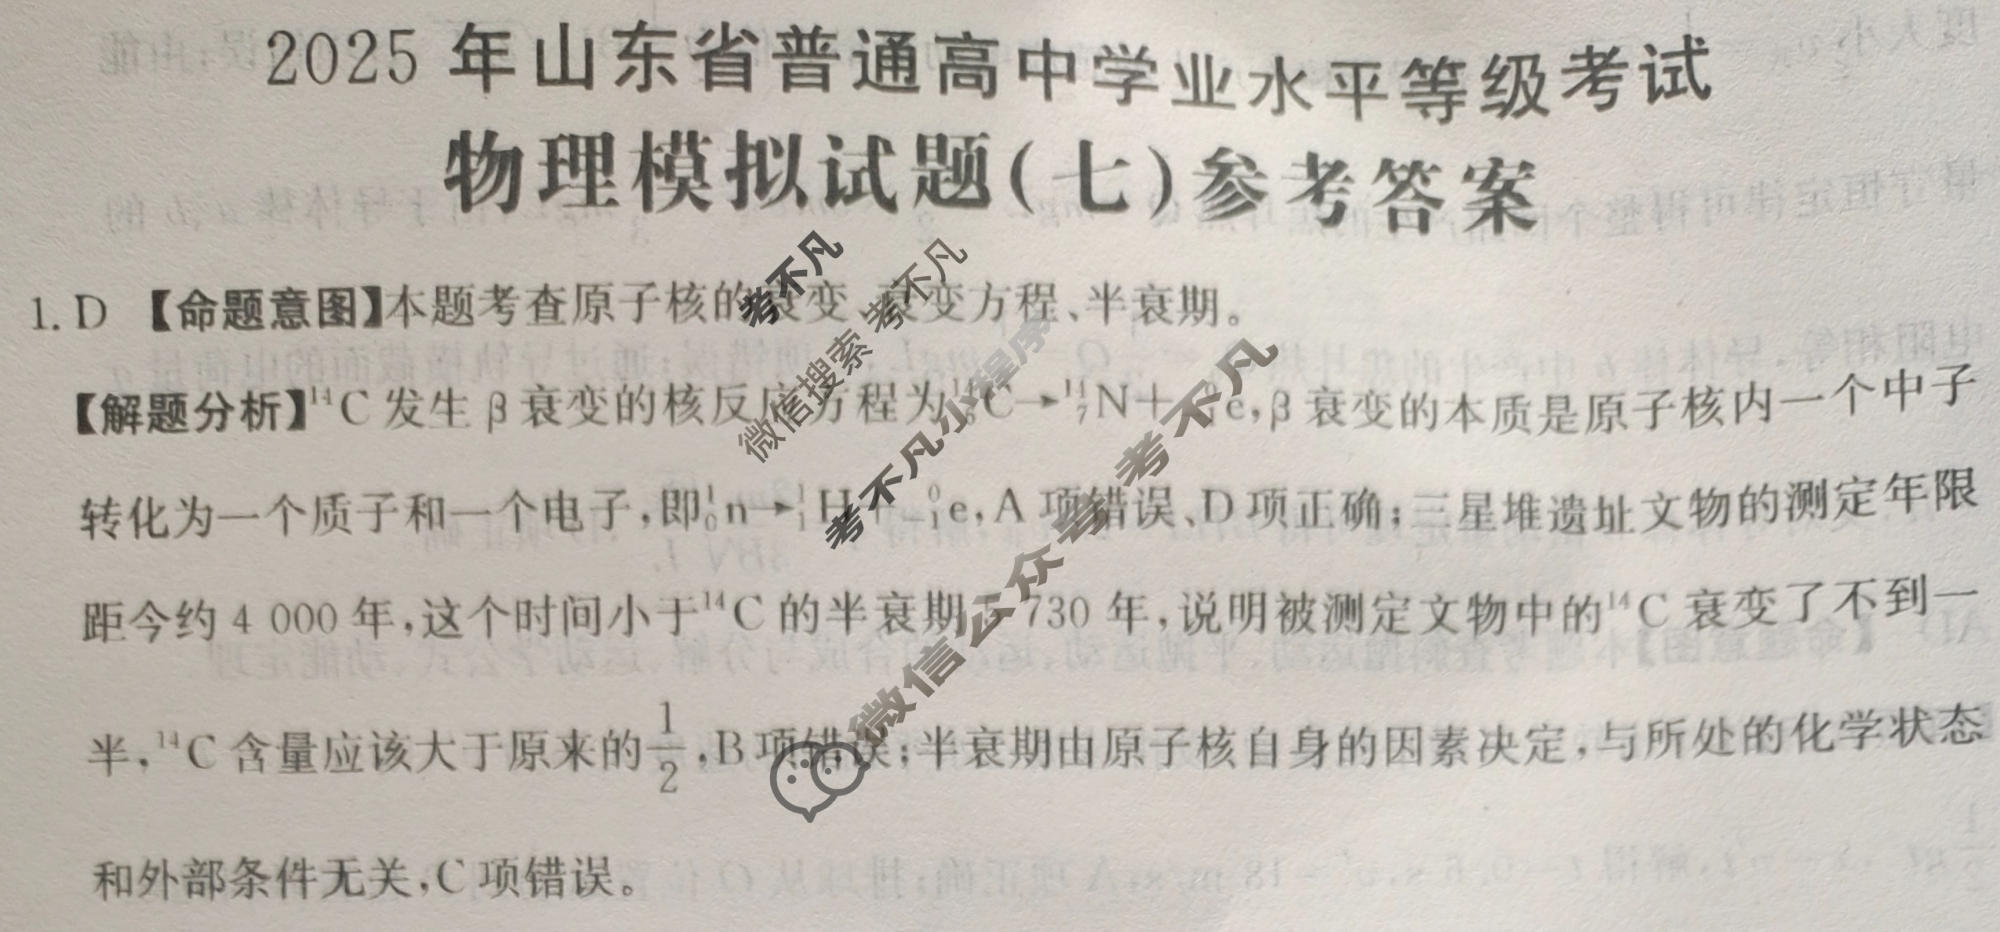 2025年山东省普通高中学业水平等级考试
物理模拟试题(七)参考答案
1. D 【命题意图】本题考查原子核的衰变、衰变方程、半衰期。
【解题分析】¹⁴C 发生 β 衰变的核反应方程为¹⁴₆C→¹⁴₇N+⁰₋₁e,β 衰变的本质是原子核内一个中子
转化为一个质子和一个电子,即¹₀n→¹₁H+⁰₋₁e,A 项错误、D 项正确;三星堆遗址文物的测定年限
距今约 4 000 年,这个时间小于¹⁴C 的半衰期 730 年,说明被测定文物中的¹⁴C 衰变了不到一
半,¹⁴C 含量应该大于原来的1/2,B 项错误;半衰期由原子核自身的因素决定,与所处的化学状态
和外部条件无关,C 项错误。
考不凡
微信搜索 考不凡
考不凡小程序
微信公众号 考不凡